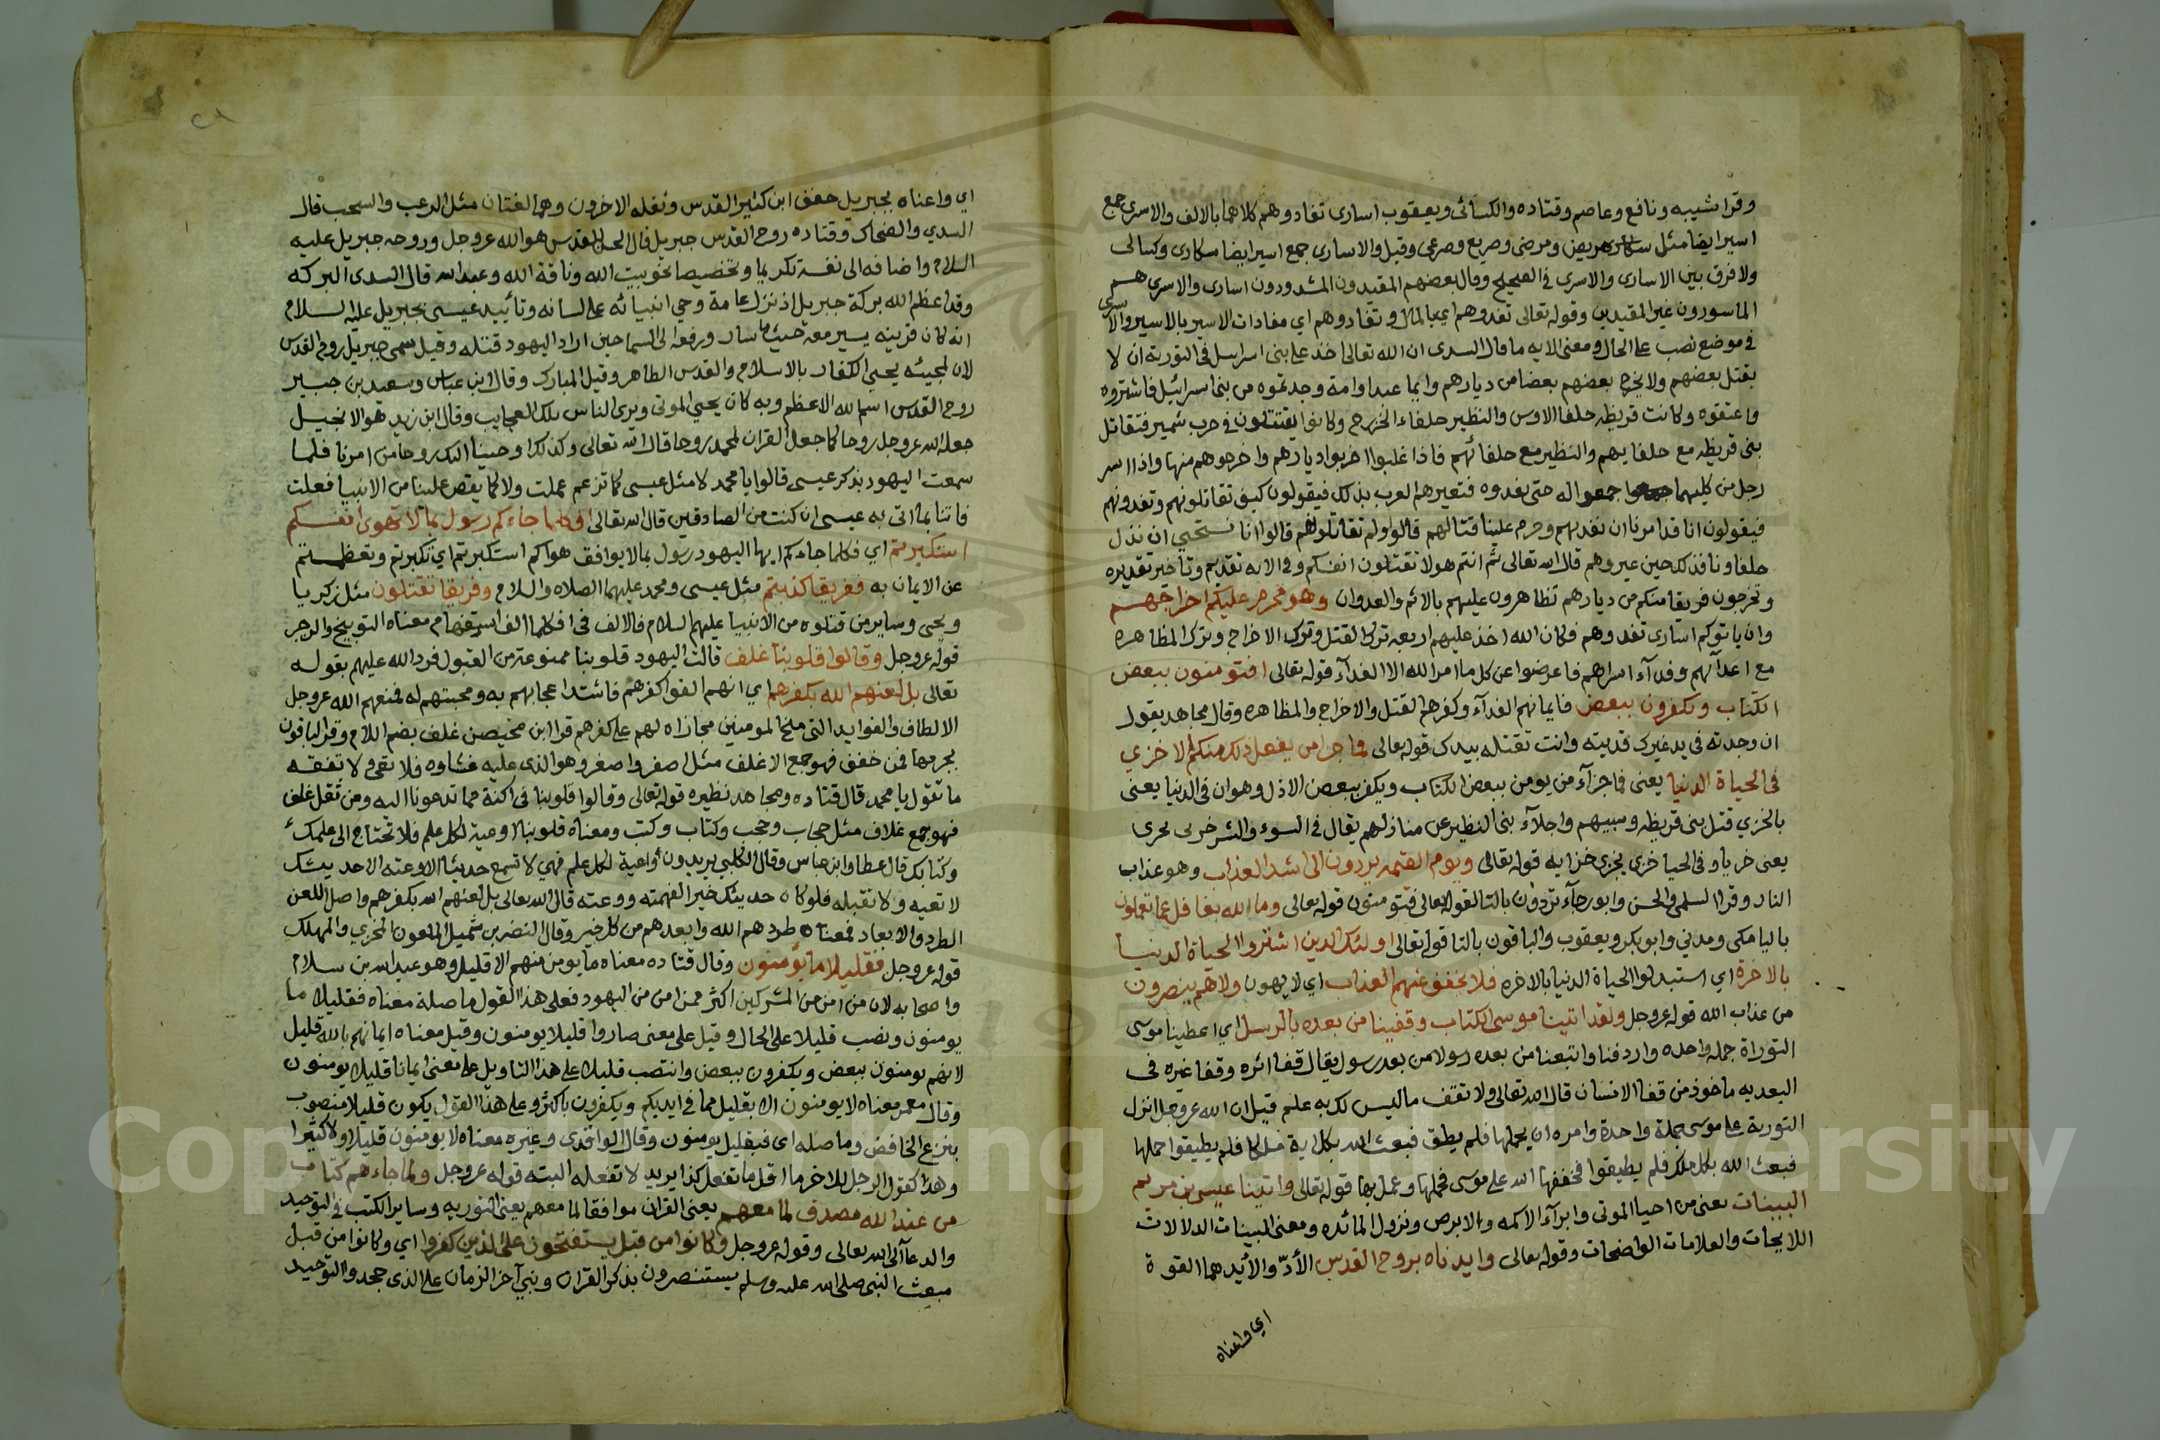 وقرا شيبه ونافع وعاصم وقتاده والكسائى ويعقوب اسارى تفادوهم كلاهما بالالف والاسرى جمع
اسير ايضا مثل مريض ومرضى وصريع وصرعى وقيل والاسارى جمع اسير ايضا سكارى وكسالى
ولا فرق بين الاسارى والاسرى فى الصحيح وقال بعضهم المقيدون المشدودون اسارى والاسرى هم
الماسورون غير المقيدين وقوله تعالى تفدوهم اي بالمال وتفادوهم اي مفادات الاسير بالاسير والاسرى
فى موضع نصب على الحال ومعنى الايه ما قال السدى ان الله تعالى اخذ على بنى اسرايل فى التورية ان لا
يقتل بعضهم ولا يخرج بعضهم بعضا من ديارهم وايما عبدا وامة وجدتموه من بنى اسرائيل فاشتروه
واعتقوه وكانت قريظه حلفا الاوس والنظير حلفاء الخزرج وكانوا يقتتلون فى حرب شمير فتقاتل
بنى قريظه مع حلفايهم والنظير مع حلفائهم فاذا غلبوا اخربوا ديارهم واخرجوهم منها واذا اسر
رجل من كليهما جمعوا له حتى يفدوه فتعيرهم العرب بذلك فيقولون كيف تقاتلونهم وتفدونهم
فيقولون انا قد امرنا ان نفديهم وحرم علينا قتالهم قالوا ولم تقاتلونهم قالوا انا نستحيي ان نذل
حلفاونا فذلك حين عيروهم قال الله تعالى ثم انتم هولا تقتلون انفسكم وفى الايه تقديم وتاخير تقديره
وتخرجون فريقا منكم من ديارهم تظاهرون عليهم بالاثم والعدوان وهو محرم عليكم اخراجهم
وان ياتوكم اسارى تفدوهم فكان الله اخذ عليهم اربعه ترك القتل وترك الاخراج وترك المظاهره
مع اعدآئهم وفدآء اسراهم فاعرضوا عن كل ما امر الله الا الفدآء قوله تعالى افتؤمنون ببعض
الكتاب وتكفرون ببعض فايمانهم الفدآء وكفرهم القتل والاخراج والمظاهره وقال مجاهد يقول
ان وجدته فى يد غيرك فديته وانت تقتله بيدك قوله تعالى فما جزا من يفعل ذلك منكم الا خزي
فى الحياة الدنيا يعنى فما جزآء من يومن ببعض الكتاب ويكفر ببعض الاذل وهوان فى الدنيا يعنى
بالخزي قتل بنى قريظه وسبيهم واجلآء بنى النظير عن منازلهم يقال فى السوء والشر خزى يخزى
يعنى خزيا وفى الحيا خزى يخزى خزايه قوله تعالى ويوم القيمه يردون الى اشد العذاب وهو عذاب
النار وقرا السلمى والحسن وابو رجآء تردون بالتا لقوله تعالى افتومنون قوله تعالى وما الله بغافل عما تعملون
باليا مكى ومدني وابو بكر ويعقوب والباقون بالتا قوله تعالى اولئك الذين اشتروا الحياة الدنيا
بالاخرة اي استبدلوا الحياة الدنيا بالاخره فلا يخفف عنهم العذاب اي لا يهون ولا هم ينصرون
من عذاب الله قوله عز وجل ولقد اتينا موسى الكتاب وقفينا من بعده بالرسل اي اعطينا موسى
التوراة جملة واحده واردفنا واتبعنا من بعده رسولا من بعد رسول يقال قفا اثره وقفا غيره فى
البعد به ماخوذ من قفا الانسان قال الله تعالى ولا تقف ما ليس لك به علم قيل ان الله عز وجل انزل
التورية على موسى جملة واحدة وامره ان يحملها فلم يطق فبعث الله بكل اية ملكا فلم يطيقوا حملها
فبعث الله بكل ملك فلم يطيقوا فخففها الله على موسى فحملها وعمل بها قوله تعالى واتينا عيسى بن مريم
البينات يعنى من احيا الموتى وابرآء الاكمه والابرص ونزول المائده ومعنى البينات الدلالات
اللايحات والعلامات الواضحات وقوله تعالى وايدناه بروح القدس الأدّ والأيد هما القوة
اي واعناه
اي واعناه بجبريل خفف ابن كثير القدس وثقله الاخرون وهما لغتان مثل الرعب والسحب قال
السدي والضحاك وقتاده روح القدس جبريل قال القدس هو الله عز وجل وروحه جبريل عليه
السلام واضافه الى نفسه تكريما وتخصيصا نحو بيت الله وناقة الله وعبد الله قال السدى البركه
وقد اعظم الله بركة جبريل اذ نزل عامة وحي انبيائه على لسانه وتأييد عيسى بجبريل عليه السلام
انه كان قرينه يسير معه حيث ما سار ورفعه الى السما حين اراد اليهود قتله وقيل سمى جبريل روح القدس
لان لمجيئه يحيى الكفار بالاسلام والقدس الطاهر وقيل المبارك وقال ابن عباس وسعيد بن جبير
روح القدس اسم الله الاعظم وبه كان يحيى الموتى ويرى الناس تلك العجايب وقال ابن زيد هو الانجيل
جعله الله عز وجل روحا كما جعل القران لمحمد روحا قال الله تعالى وكذلك اوحينا اليك روحا من امرنا فلما
سمعت اليهود بذكر عيسى قالوا يا محمد لا مثل عيسى كما تزعم عملت ولا كما يقص علينا من الانبيا فعلت
فاتنا بما اتى به عيسى ان كنت من الصادقين قال الله تعالى افكلما جاءكم رسول بما لا تهوى انفسكم
استكبرتم اي فكلما جاءكم ايها اليهود رسول بما لا يوافق هواكم استكبرتم اي تكبرتم وتعظمتم
عن الايمان به ففريقا كذبتم مثل عيسى ومحمد عليهما الصلاه والسلام وفريقا تقتلون مثل زكريا
ويحيى وساير من قتلوه من الانبيا عليهم السلام فالالف فى افكلما الف استفهام معناه التوبيخ والزجر
قوله عز وجل وقالوا قلوبنا غلف قالت اليهود قلوبنا ممنوعة من القبول فرد الله عليهم بقوله
تعالى بل لعنهم الله بكفرهم اي انهم الفوا كفرهم فاشتد اعجابهم به ومحبتهم له فمنعهم الله عز وجل
الالطاف والفوايد التى منح المومنين مجازاه لهم على كفرهم قرا ابن محيصن غلف بضم اللام وقرا الباقون
بجزمها فمن خفف فهو جمع الاغلف مثل اصفر وصفر وهو الذى عليه غشاوه فلا تعى ولا تفقه
ما تقول يا محمد قال قتاده ومجاهد نظيره قوله تعالى وقالوا قلوبنا فى اكنة مما تدعونا اليه ومن ثقل غلف
فهو جمع غلاف مثل حجاب وحجب وكتاب وكتب ومعناه قلوبنا اوعية لكل علم فلا تحتاج الى علمك
وكتابك قال عطا وابن عباس وقال الكلبي يريدون أوعية لكل علم فهي لا تسمع حديثا الا وعته الا حديثك
لا تعيه ولا تقبله فلو كان حديثك خيرا لفهمته ووعته قال الله تعالى بل لعنهم الله بكفرهم واصل اللعن
الطرد والابعاد فمعناه طردهم الله وابعدهم من كل خير وقال النضر بن شميل الملعون المخزي والمهلك
قوله عز وجل فقليلا ما يؤمنون وقال قتاده معناه ما يومن منهم الا قليل وهو عبد الله بن سلام
واصحابه لان من امن من المشركين اكثر ممن امن من اليهود فعلى هذا القول ما صلة معناه فقليلا ما
يومنون ونصب قليلا على الحال وقيل على معنى صاروا قليلا يومنون وقيل معناه ايمانهم بالله قليل
لانهم يومنون ببعض ويكفرون ببعض وانتصب قليلا على هذا التاويل على معنى ايمانا قليلا يومنون
وقال معمر معناه لا يومنون الا بقليل مما فى ايديكم ويكفرون باكثره وعلى هذا القول يكون قليلا منصوب
بنزع الخافض وما صله اى فبقليل يومنون وقال الواقدى وغيره معناه لا يومنون قليلا ولا كثيرا
وهذا كقول الرجل للاخر ما اقل ما تفعل كذا يريد لا تفعله البته قوله عز وجل ولما جاءهم كتاب
من عند الله مصدق لما معهم يعنى القران موافقا لما معهم يعنى التوريه وساير الكتب فى التوحيد
والدعآ الى الله تعالى وقوله عز وجل وكانوا من قبل يستفتحون على الذين كفروا اي وكانوا من قبل
مبعث النبى صلى الله عليه وسلم يستنصرون بذكر القران ونبي آخر الزمان على الذى جحدوا التوحيد
Copyright © King Saud University